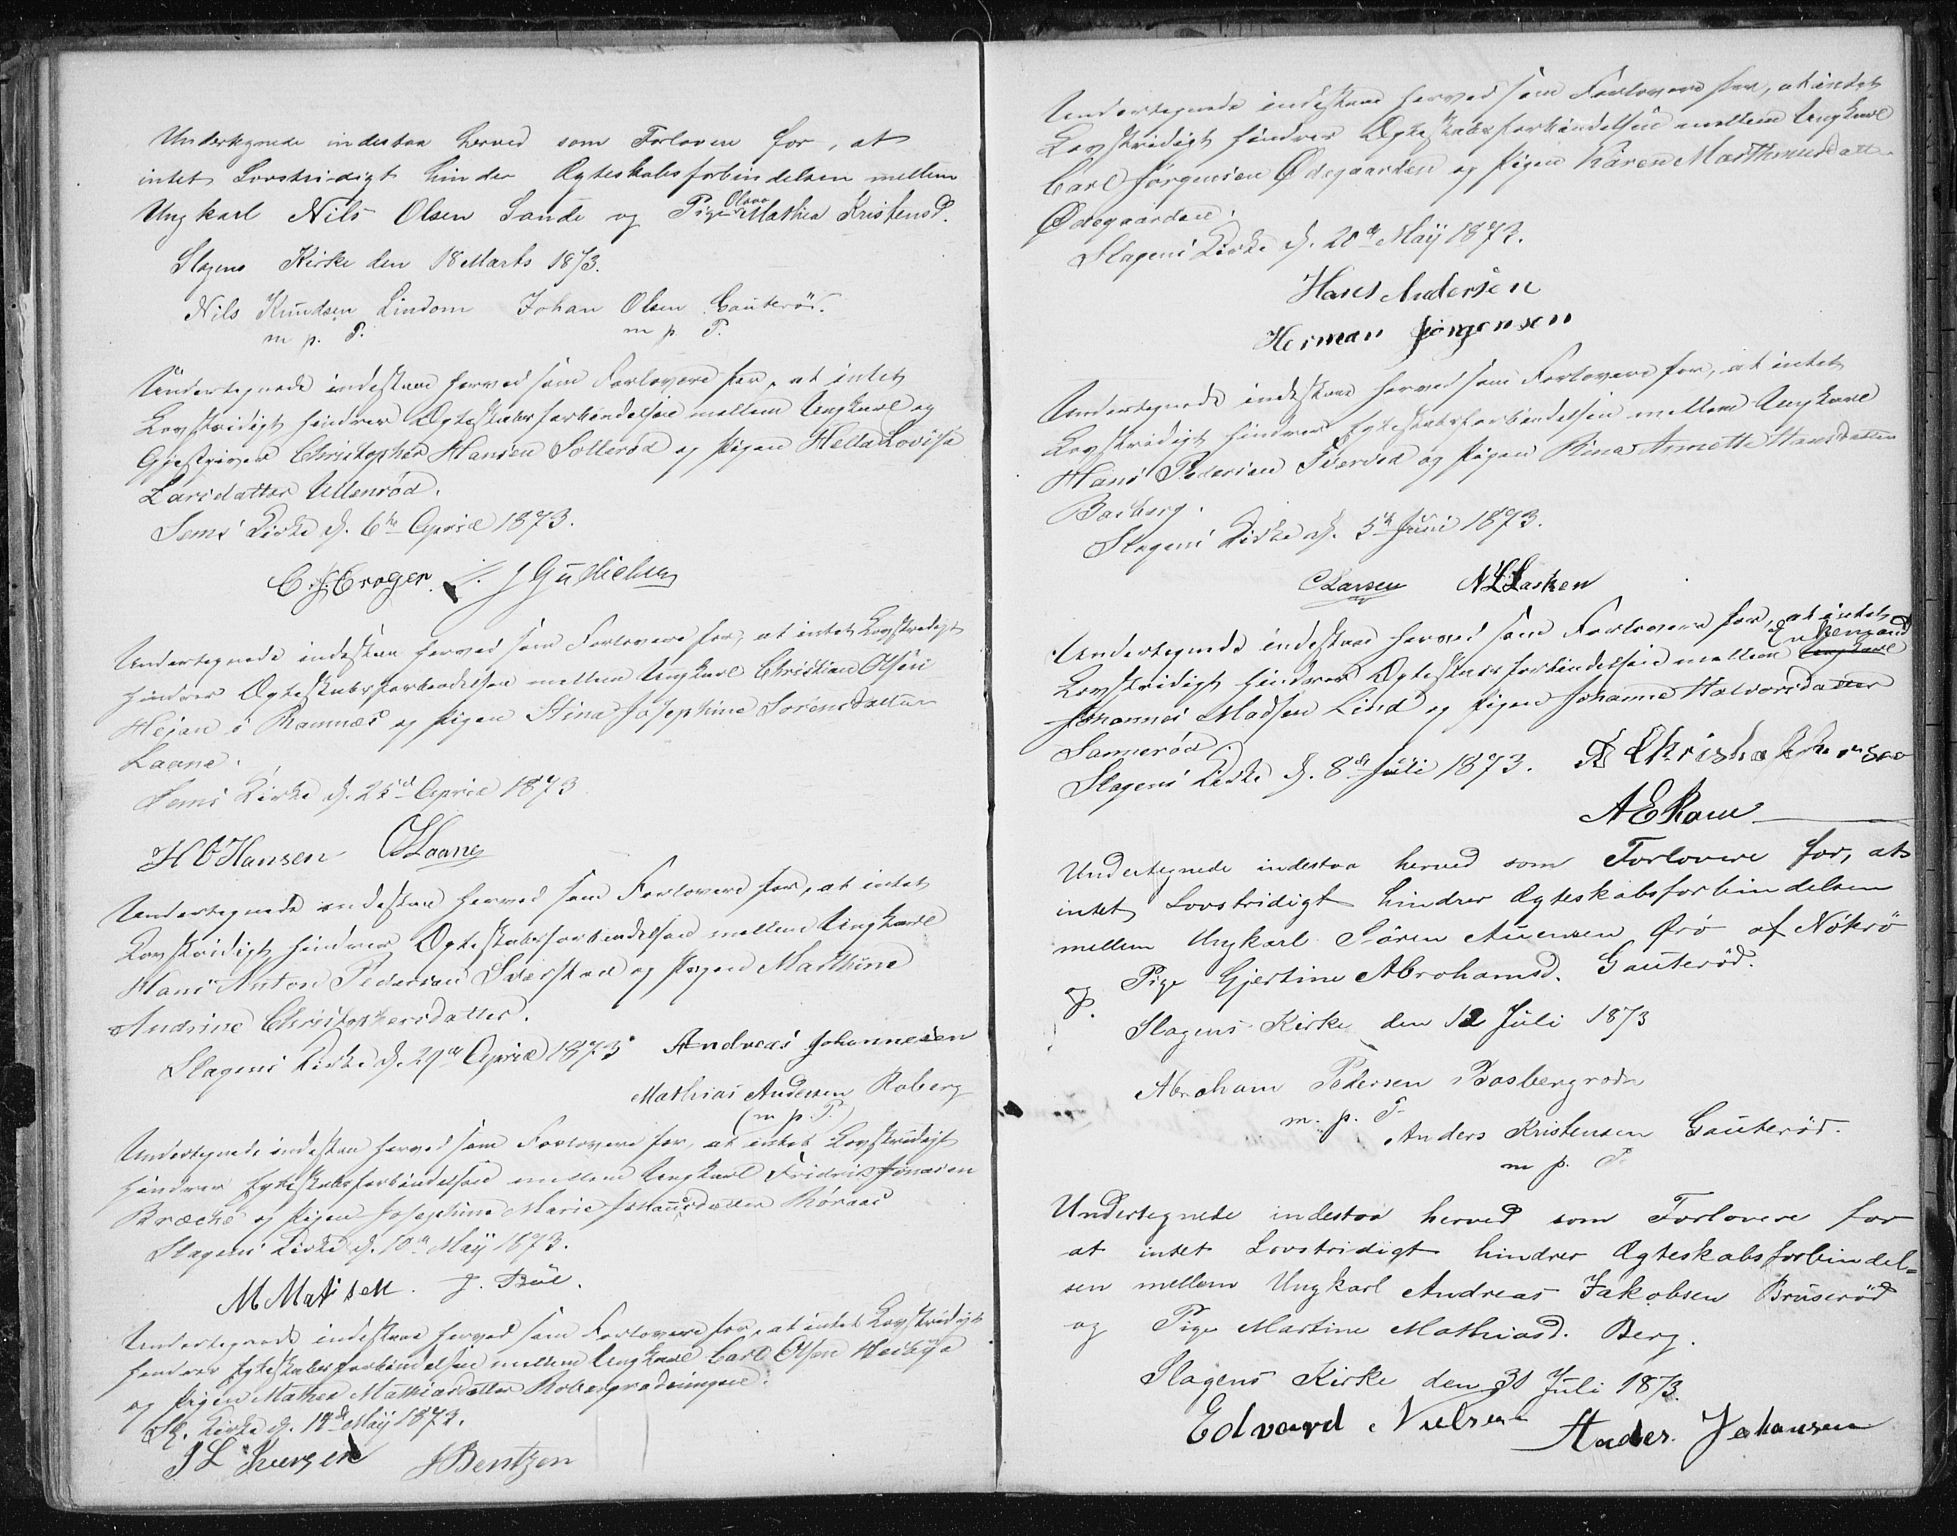 Undertegnede indestaa herved som Forlovere for, at
intet Lovstridigt hinder Ægteskabsforbindelsen mellem
Ungkarl Nils Olsen Sande og Pige Olava Mathea Kristensd.
Slagens Kirke den 18 Marts 1873.
Nils Knudsen Lindom Johan Olsen Gauterød.
m. p. P. m p P.
Undertegnede indestaae herved som Forlovere for, at intet
Lovstridigt hindrer Ægteskabsforbindelsen mellem Ungkarl og
Gjestgiver Christopher Hansen Solleröd og Pigen Hella Lovise
Larsdatter Ullenröd.
Sems Kirke d. 6te April 1873.
C. J. Croger.
Undertegnede indestaa herved som Forlovere for, at intet Lovstridigt
hindrer Ægteskabsforbindelsen mellem Ungkarl Christian Olsen
i Ramnæs og Pigen Stina Josephine Sörensdatter
Laane.
Sems Kirke d. 25d April 1873
H O Hansen Laane
Undertegnede indestaae herved som Forlovere for, at intet
Lovstridigt hindrer Ægteskabsforbindelsen mellem Ungkarl
Hans Anton Pedersen og Pigen Mathine
Andrine Christophersdatter.
Slagens Kirke d. 29de April 1873 Andreas Johannesen
Mathias Andersen Roberg
(m. p. P.)
Undertegnede indestaa herved som Forlovere for, at intet Lovstridigt
hindrer Egteskabsforbindelsen mellem Ungkarl Fridrik Jonasen
Brœche og Pigen Josephine Marie Røraas
Slagens Kirke d. 10de Maÿ 1873.
M Matisen. J. Bül.
Undertegnede indestaae herved som Forlovere for, at intet Lovstridigt
hindrer Egteskabsforbindelsen mellem Ungkarl Carl Olsen
og Pigen Mathea Mathiasdatter
Sl. Kirke d. Maÿ 1873.
J Bentzen
Undertegnede indestaae herved som Forlovere for, at intet
Lovstridigt hindrer Ægteskabsforbindelsen mellem Ungkarl
Carl Jørgensen Ødegaarden og Pigen Karen Marthinusdatter
Ødegaarden.
Slagens Kirke d. 20de Maÿ 1873.
Hans Andersen
Herman Jörgensen
Undertegnede indestaae herved som Forlovere for, at intet
Lovstridigt hindrer Egteskabsforbindelsen mellem Ungkarl
Hans Pedersen og Pigen Rina Annette Hansdatter
Basberg.
Slagens Kirke d. 5te Juni 1873.
C Larsen N L Larsen
Undertegnede indestaae herved som Forlovere for, at intet
Lovstridigt hindrer Ægteskabsforbindelsen mellem Ungkarl Enkemand
Johannes Madsen Lind og Pigen Johanne Halvorsdatter
Sannerød.
Slagens Kirke d. 8de Juli 1873. Christophersen
A E Ram
Undertegnede indestaa herved som Forlovere for, at
intet Lovstridigt hindrer Ægteskabsforbindelsen
mellem Ungkarl Sören Auensen Örö af Nøtrö
og Pige Gjertine Abrahamsd. Gauterød.
Slagens Kirke den 12 Juli 1873
Abraham Pedersen Basbergrødn
m. p. P.
Anders Kristensen Gauterød.
m p. P.
Undertegnede indestaa herved som Forlovere for
at intet Lovstridigt hindrer Ægteskabsforbindel=
sen mellem Ungkarl Andreas Jakobsen Bruserød
og Pige Martine Mathiasd. Berg.
Slagens Kirke den 31 Juli 1873.
Edvard Nielsen Anders Johansen